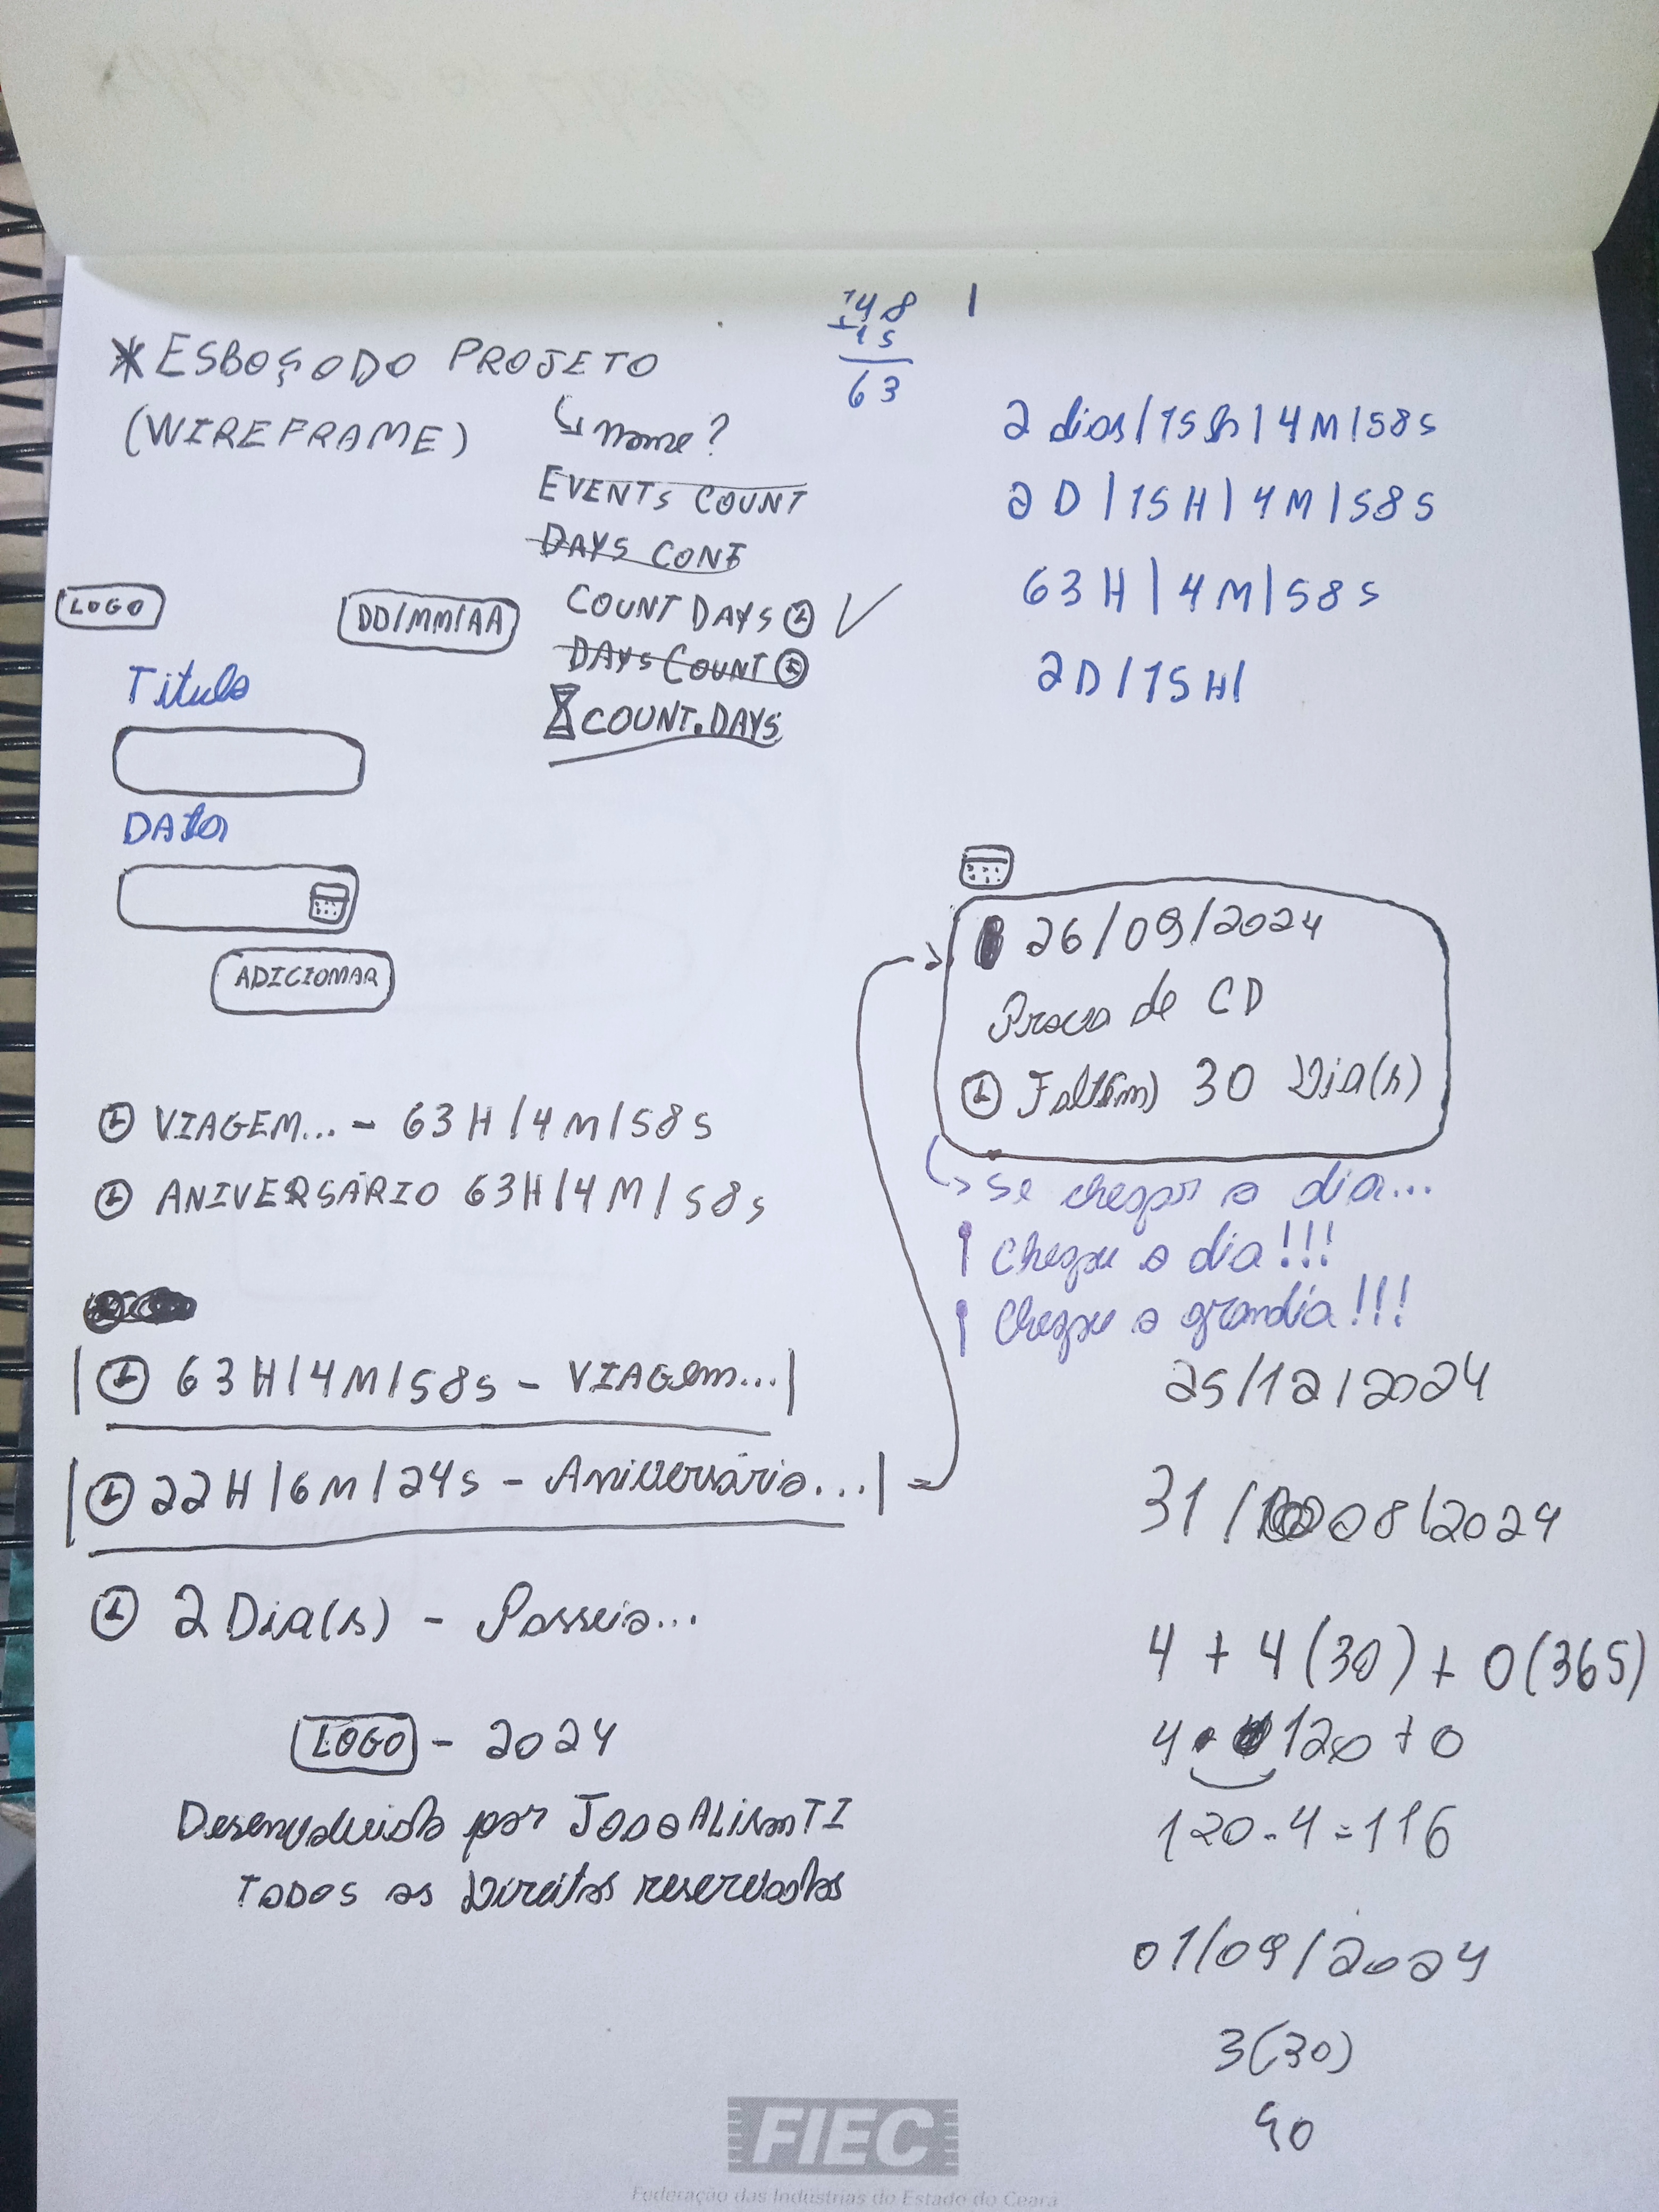 * ESBOÇO DO PROJETO
(WIREFRAME)
↳ nome?
EVENTS COUNT
DAYS CONT
COUNT DAYS ✓
DAYS COUNT
COUNT.DAYS
48
+15
63
2 dias/15h/4M/58s
2D/15H/4M/58s
63H/4M/58s
2D/15H/
LOGO
DD/MM/AA
Titulo
DATA
ADICIONAR
VIAGEM... - 63H/4M/58s
ANIVERSÁRIO 63H/4M/58s
|63H/4M/58s - VIAGem...|
|22H/6M/24s - Aniversário...|
2 Dia(s) - Passeio...
LOGO - 2024
Desenvolvido por
TODOS os Direitos reservados
26/09/2024
Prova de CD
Falta(m) 30 Dia(s)
↳ se chegar o dia...
Chegou o dia!!!
Chegou o grandia!!!
25/12/2024
31/08/2024
4 + 4(30) + 0(365)
4 120 + 0
120-4=116
01/09/2024
3(30)
90
FIEC
Federação das Indústrias do Estado do Ceará